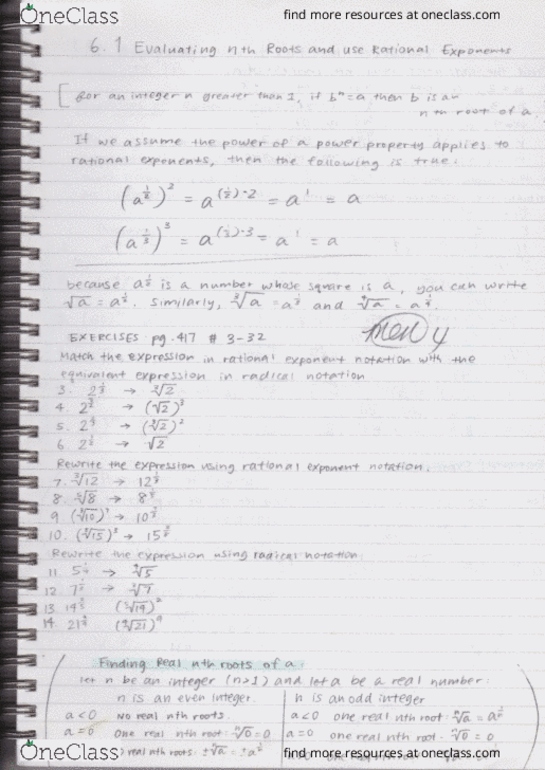 OneClass
find more resources at oneclass.com
6.1 Evaluating nth Roots and use Rational Exponents
for an integer n greater than 1, if bⁿ = a then b is an
nth root of a.
If we assume the power of a power property applies to
rational exponents, then the following is true:
(a^(1/2))² = a^((1/2)·2) = a¹ = a
(a^(1/3))³ = a^((1/3)·3) = a¹ = a
because a^(1/2) is a number whose square is a, you can write
√a = a^(1/2). Similarly, ∛a = a^(1/3) and ∜a = a^(1/4).
EXERCISES pg. 417 # 3-32
Match the expression in rational exponent notation with the
equivalent expression in radical notation
3. 2^(1/3) → ∛2
4. 2^(3/2) → (√2)³
5. 2^(2/3) → (∛2)²
6. 2^(1/2) → √2
Rewrite the expression using rational exponent notation.
7. ∛12 → 12^(1/3)
8. 8 → 8
9. 10 → 10
10. 15 → 15
Rewrite the expression using radical notation:
11. 5^(1/4) → ∜5
12. 7 → 7
13. 14
14. 21
Finding Real nth roots of a.
let n be an integer (n>1) and let a be a real number:
n is an even integer.
n is an odd integer
a<0 No real nth roots.
a<0 one real nth root: ⁿ√a = a^(1/n)
a=0 one real nth root: ⁿ√0 = 0
a=0 one real nth root: ⁿ√0 = 0
real nth roots: ±ⁿ√a = ±a^(1/n)
OneClass
find more resources at oneclass.com